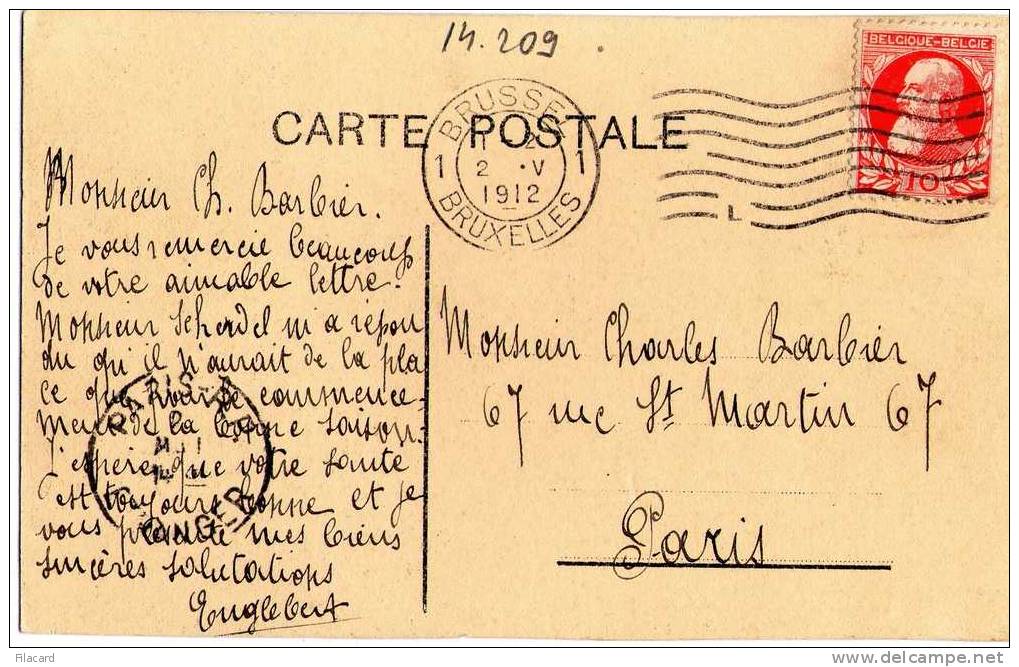 14.209
BELGIQUE-BELGIE
10
CARTE POSTALE
BRUSSEL
1 1
2 V
1912
BRUXELLES
L
Monsieur Ch. Barbier.
Je vous remercie beaucoup
de votre aimable lettre.
Monsieur Scherdel m'a répon
du qu'il n'aurait de la pla
ce que pour le commence-
ment de la bonne saison.
J'espère que votre santé
est toujours bonne et je
vous présente mes biens
sincères salutations
Englebert
PARIS
ETRANGER
Monsieur Charles Barbier
67 rue St Martin 67
Paris
Filacard
www.delcampe.net